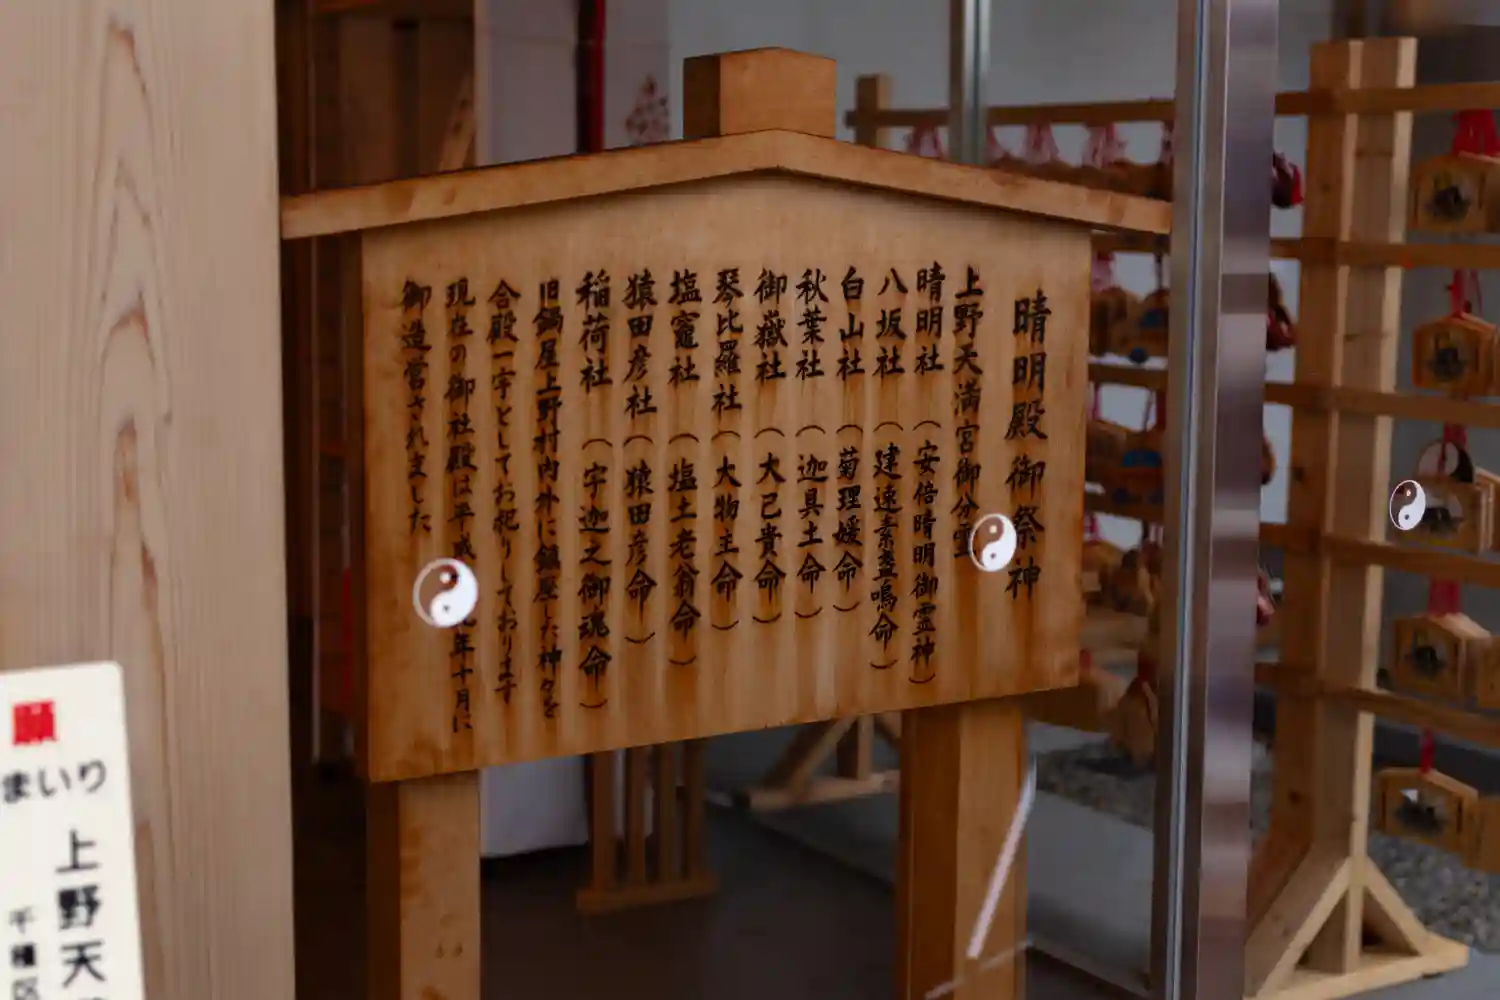 晴明殿御祭神
上野天満宮御分霊
晴明社（安倍晴明御霊神）
八坂社（建速素盞嗚命）
白山社（菊理媛命）
秋葉社（迦具土命）
御嶽社（大己貴命）
琴比羅社（大物主命）
塩竈社（塩土老翁命）
猿田彦社（猿田彦命）
稲荷社（宇迦之御魂命）
旧鍋屋上野村内外に鎮座した神々を
合殿一宇としてお祀りしております
現在の御社殿は平成 年十月に
御造営されました
まいり
上野天
千種区